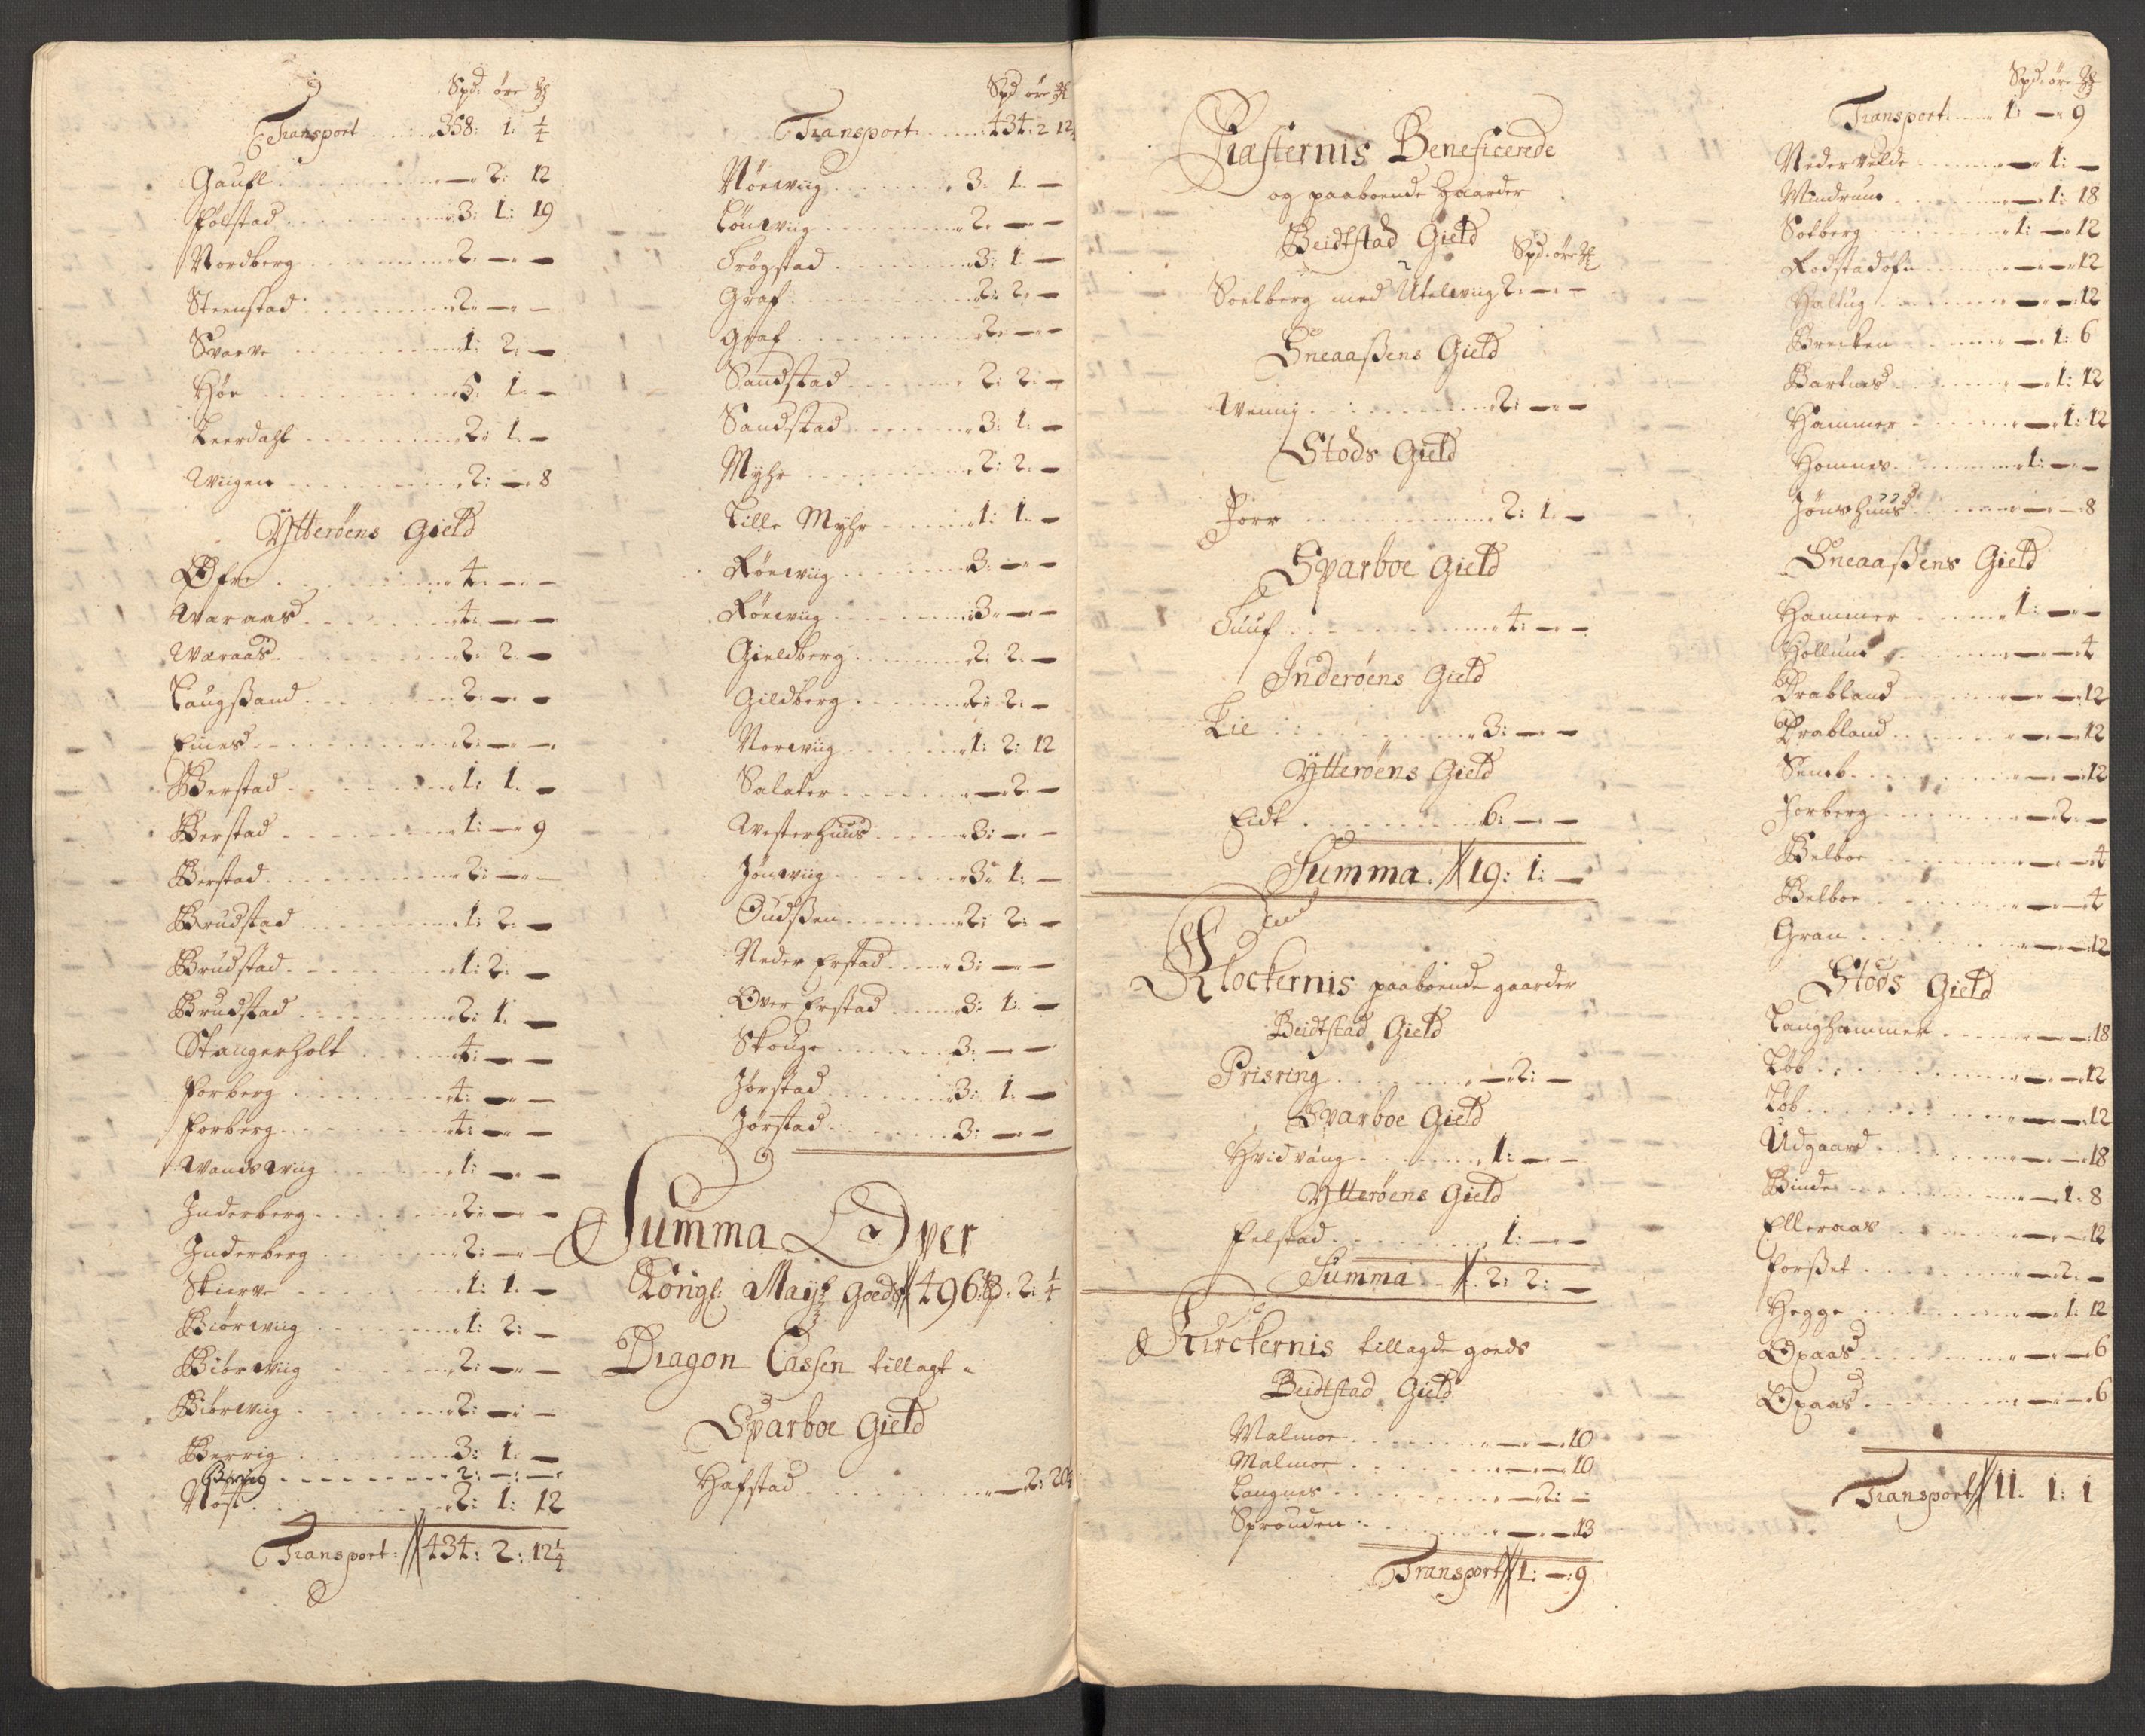 Spd öre
Transport 358: 1: 1/4
Gaufl — 2: 12
Følstad 3: 1: 19
Nordberg 2: — —
Steenstad 2: — —
Svarve 1: 2: —
Høe 5: 1: —
Leerdahl 2: 1: —
Wiigen 2: — 8
Ytterøens Gield
Øfre 4: — —
Waraas 4: — —
Waraas 2: 2: —
Laugßand 2: — —
Eines 2: — —
Berstad 1: 1: —
Berstad 1: — 9
Berstad 2: — —
Brudstad 1: 2: —
Brudstad 1: 2: —
Brudstad 2: 1: —
Stangerholt 4: — —
Forberg 4: — —
Forberg 4: — —
Wandswiig 1: — —
Inderberg 2: — —
Inderberg 2: — —
Skierve 1: 1: —
Biørwiig 1: 2: —
Biørwiig 2: — —
Biørwiig 2: — —
Berrig 3: 1: —
Berrig 2: — —
Nøst 2: 1: 12
Transport: 434: 2: 12 1/4
Spd öre
Transport 434: 2 12
Nørwiig 3: 1: —
Lønwiig 2: — —
Trøgstad 3: 1 —
Graf 2: 2: —
Graf 2: — —
Sandstad 2: 2: —
Sandstad 3: 1: —
Myhr 2: 2: —
Lille Myhr 1: 1: —
Rørwiig 3: — —
Rørwiig 3: — —
Gieldberg 2: 2: —
Gildberg 2: 2: —
Norwiig 1: 2: 12
Salater — 2: —
Westerhuus 3: — —
Jønwiig 3: 1: —
Oudßen 2: 2: —
Neder Erstad 3: — —
Over Erstad 3: 1: —
Skouge 3: — —
Jørstad 3: 1: —
Jørstad 3: — —
Summa Over
Kongl: Mayt: Goeds 496: 2: 1/4
Dragon Cassen tillagt
Sparboe Gield
Hafstad — 2: 20 1/2
Præsternis Beneficerede
og paaboende Gaarder
Beidtstad Gield Spd: öre
Soelberg med Utelwiig 2: — —
Sneaaßens Gield
Wennig 2: — —
Stods Gield
Forr 2: 1: —
Sparboe Gield
Tuuf 4: — —
Inderøens Gield
Lie 3: — —
Ytterøens Gield
Eidt 6: — —
Summa 19: 1: —
Klockernis paaboende gaarder
Beidtstad Gield
Prisring — 2: —
Sparboe Gield
Hvidvang 1: — —
Ytterøens Gield
Felstad 1: — —
Summa 2: 2: —
Kirckernis tillagde goeds
Beidtstad Gield
Malmoe — — 10
Malmoe — — 10
Langnes — 2: —
Sprouden — — 13
Transport 1: — 9
Spd: öre
Transport 1: — 9
Nedervelde — 1: —
Windrum — 1: 18
Solberg 1: — 12
Rodstadøfn — — 12
Haltug — — 12
Breiten — 1: 6
Bartnes — 1: 12
Hammer — 1: 12
Homnes 1: — —
Jønshuus — — 8
Sneaaßens Gield
Hammer 1: — —
Hollum — — 4
Brabland — — 12
Brabland — — 12
Semb — — 12
Forberg — 2: —
Belboe — — 4
Belboe — — 4
Gran — — 12
Stods Gield
Langhammer — — 18
Løb — — 12
Løb — — 12
Udgaard — — 18
Binde — 1: 8
Elleraas — — 12
Forßet — 2: —
Hegge — 1: 12
Opaas — — 6
Opaas — — 6
Transport 11: 1: 1